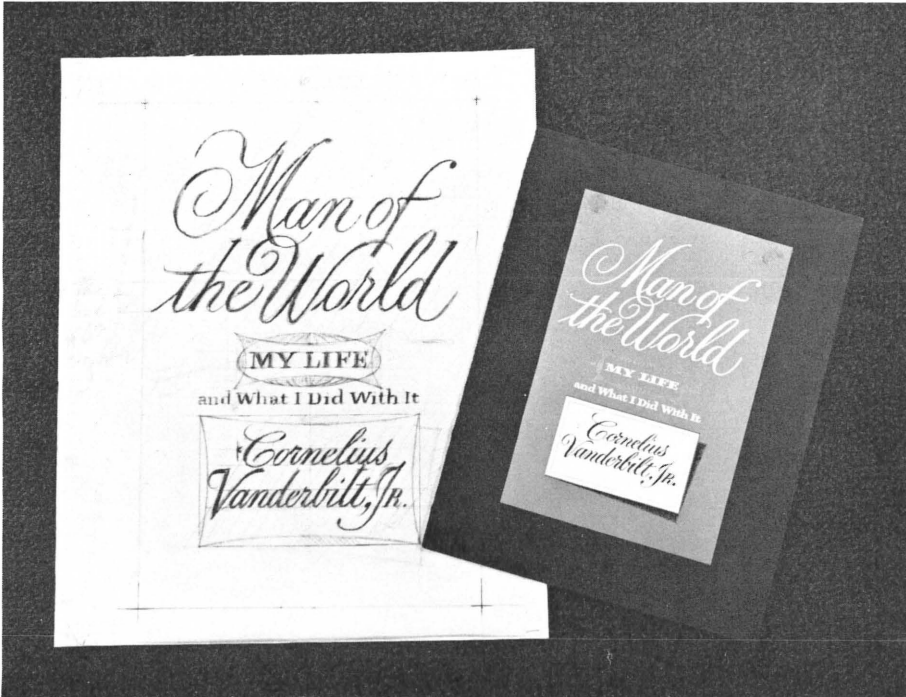 Man of
the World
MY LIFE
and What I Did With It
Cornelius
Vanderbilt, JR.
Man of
the World
MY LIFE
and What I Did With It
Cornelius
Vanderbilt, JR.